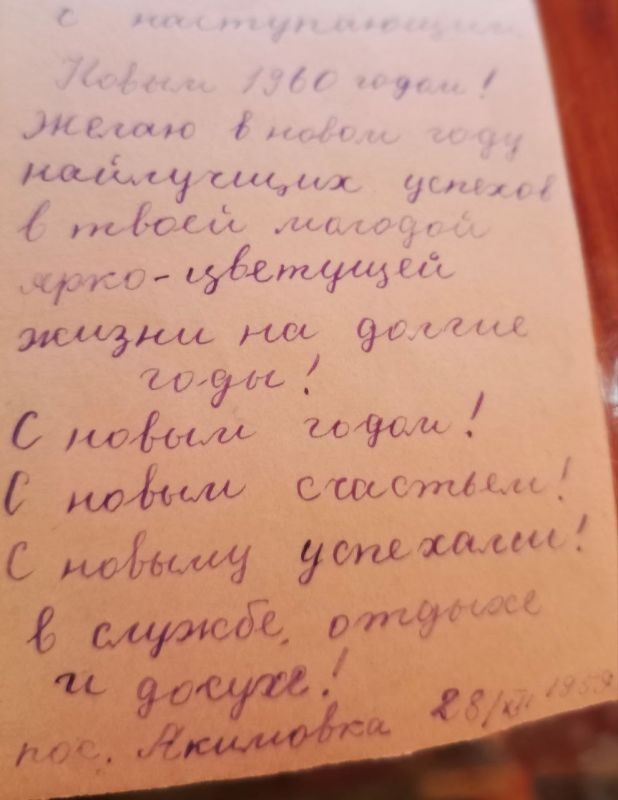 с наступающим
Новым 1960 годом!
Желаю в новом году
найлучщих успехов
в твоей молодой
ярко-цветущей
жизни на долгие
годы!
С новым годом!
С новым счастьем!
С новыму успехами!
в службе, отдыхе
и досухе!
пос. Акимовка 28/XII 1959